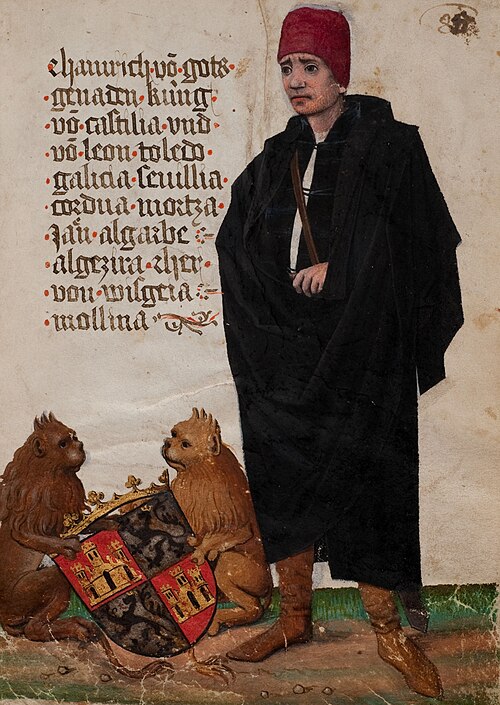 hainrich·vō·gots·
genaden·küng·
vō·castilia·vnd·
·vō·leon·toledo·
·galicia·seuillia·
·cordua·mortza·
·Jaň·algarbe·
·algezira·her·
·von·wisgeia·
·mollina·